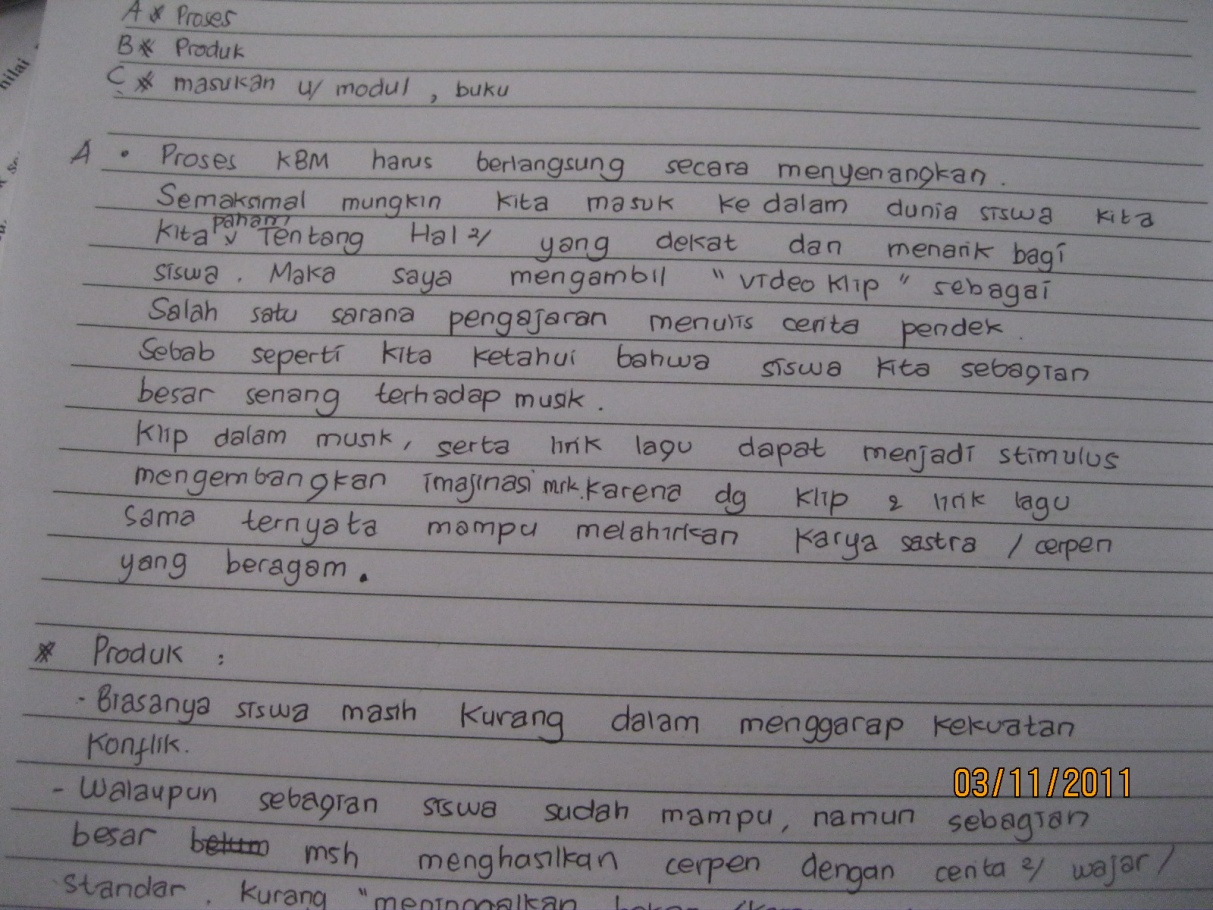 A * Proses
B * Produk
C * masukan u/ modul, buku
nilai
A • Proses KBM harus berlangsung secara menyenangkan.
Semaksimal mungkin kita masuk ke dalam dunia siswa kita
kita paham Tentang Hal 2/ yang dekat dan menarik bagi
siswa. Maka saya mengambil "video Klip" sebagai
Salah satu sarana pengajaran menulis cerita pendek.
Sebab seperti kita ketahui bahwa siswa kita sebagian
besar senang terhadap musik.
Klip dalam musik, serta lirik lagu dapat menjadi stimulus
mengembangkan imajinasi mrk. Karena dg klip 2 lirik lagu
sama ternyata mampu melahirkan karya sastra / cerpen
yang beragam.
* Produk :
- Biasanya siswa masih kurang dalam menggarap kekuatan
Konflik.
- Walaupun sebagian siswa sudah mampu, namun sebagian
besar belum msh menghasilkan cerpen dengan cerita 2/ wajar /
Standar. Kurang "meninggalkan
03/11/2011